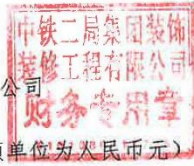 中铁二局集团装饰
装修工程有限公司
公司
财务专用章
单位为人民币元）